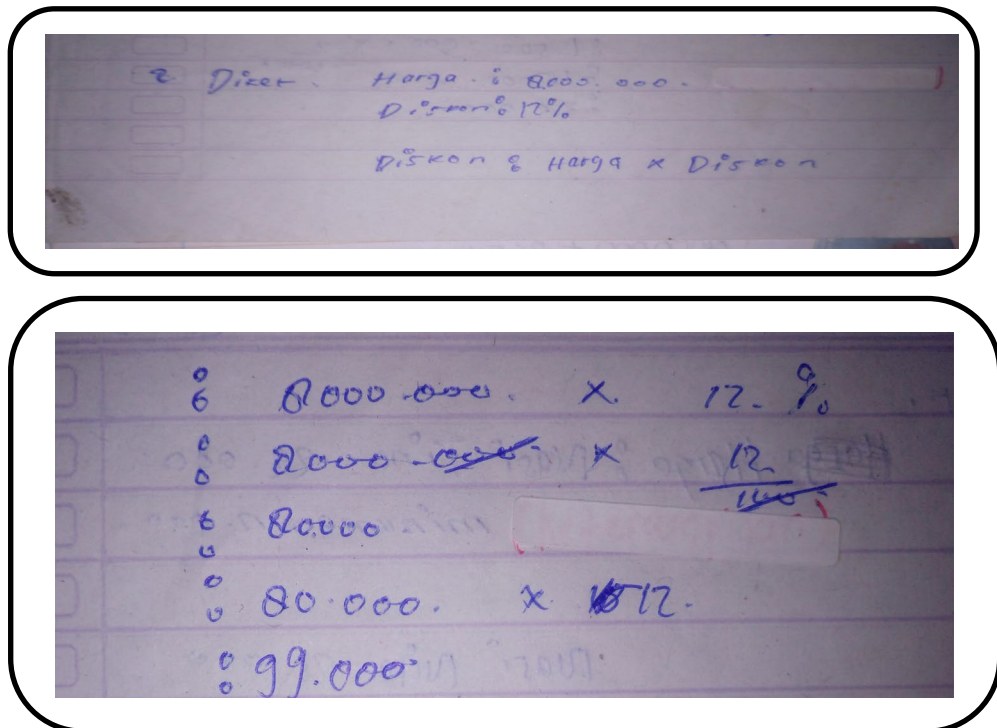 2 Diket. Harga : 8000.000.
Diskon : 12%
Diskon : Harga x Diskon
: 8000.000. x 12. %
: 8000.000. x 12
100
: 80000
: 80.000. x 12.
: 99.000